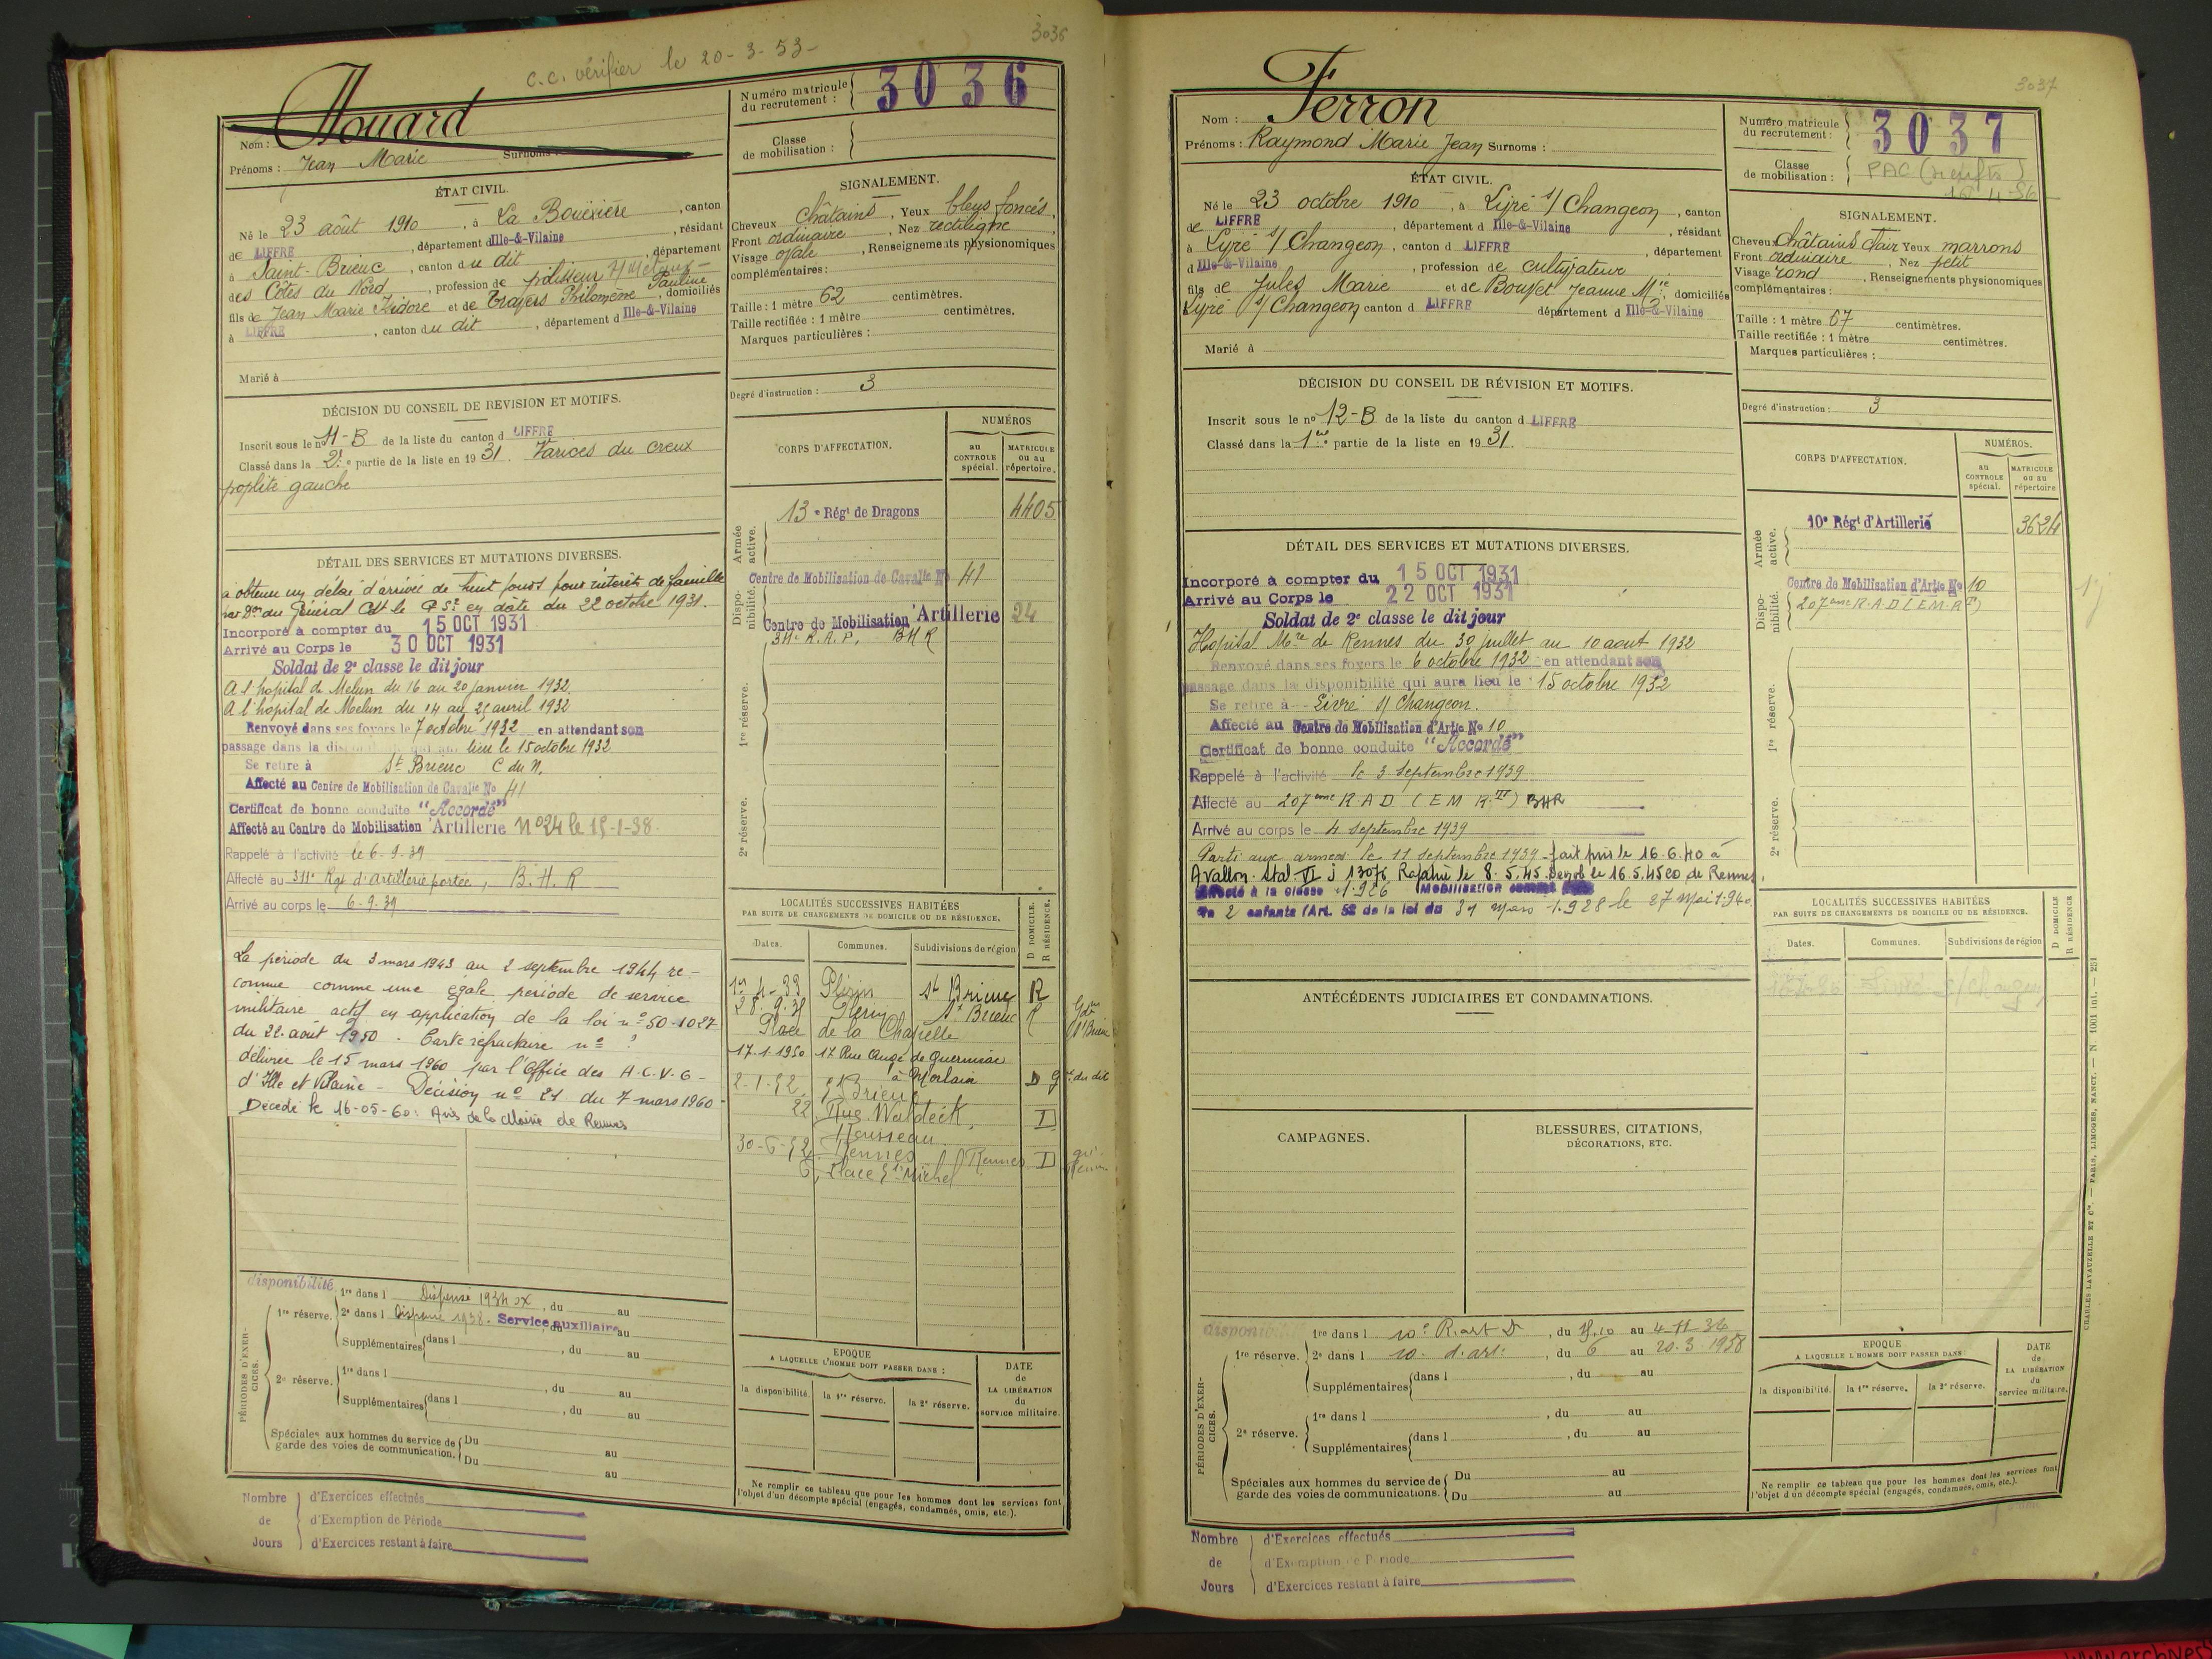 C.C. vérifier le 20-3-53-
3036
Nom : Houard
Prénoms : Jean Marie Surnoms :
Numéro matricule du recrutement : 3036
Classe de mobilisation :
ÉTAT CIVIL.
Né le 23 août 1910, à La Bouëxière, canton
de LIFFRE, département d Ille-&-Vilaine, résidant
à Saint-Brieuc, canton du dit, département
des Côtes du Nord, profession de polisseur s/ métaux
fils de Jean Marie Isidore et de Travers Philomène Pauline, domiciliés
à LIFFRE, canton du dit, département d Ille-&-Vilaine
Marié à
SIGNALEMENT.
Cheveux châtains, Yeux bleus foncés,
Front ordinaire, Nez rectiligne,
Visage ovale, Renseignements physionomiques
complémentaires :
Taille : 1 mètre 62 centimètres.
Taille rectifiée : 1 mètre centimètres.
Marques particulières :
Degré d'instruction : 3
DÉCISION DU CONSEIL DE REVISION ET MOTIFS.
Inscrit sous le no 11-B de la liste du canton d LIFFRE
Classé dans la 2e partie de la liste en 1931. Varices du creux
poplité gauche
CORPS D'AFFECTATION.
NUMÉROS
au CONTROLE spécial.
MATRICULE ou au répertoire.
Armée active.
13e Régt de Dragons 4405
Disponibilité.
Centre de Mobilisation de Cavalie No 41
Centre de Mobilisation Artillerie 24
311e R.A.P. BHR
1re réserve.
2e réserve.
DÉTAIL DES SERVICES ET MUTATIONS DIVERSES.
a obtenu un délai d'arrivée de huit jours pour intérêts de famille
par Don du Général Cdt le en date du 22 octobre 1931.
Incorporé à compter du 15 OCT 1931
Arrivé au Corps le 30 OCT 1931
Soldat de 2e classe le dit jour
A l'hopital de Melun du 16 au 20 janvier 1932
A l'hopital de Melun du 14 au 25 avril 1932
Renvoyé dans ses foyers le 7 octobre 1932 en attendant son
passage dans la lieu le 15 octobre 1932
Se retire à St Brieuc C du N.
Affecté au Centre de Mobilisation de Cavalie No 41
Certificat de bonne conduite "Accordé"
Affecté au Centre de Mobilisation Artillerie No 24 le 15-1-38.
Rappelé à l'activité le 6-9-39
Affecté au 311e Rgt d'artillerie portée, B.H.R
Arrivé au corps le 6-9-39
La période du 3 mars 1943 au 2 septembre 1944 re-
connue comme une égale période de service
militaire actif en application de la loi no 50-1027
du 22 août 1950. Carte réfractaire no ?
délivrée le 15 mars 1960 par l'Office des A.C.V.G-
d'Ille et Vilaine - Décision no 21 du 7 mars 1960-
Décédé le 16-05-60: Avis de la Mairie de Rennes
LOCALITÉS SUCCESSIVES HABITÉES
PAR SUITE DE CHANGEMENTS DE DOMICILE OU DE RÉSIDENCE.
Dates. Communes. Subdivisions de région
D DOMICILE. R RÉSIDENCE.
1er-4-33 Plérin St Brieuc R
28.9.35 Plérin St Brieuc R
Place de la Chapelle
17.1.1950 17 Rue Ange de Guernisac
à Morlaix D
2-1-52 St Brieuc
22, Rue Waldeck D
Rousseau
30-6-52 Rennes Rennes D
6, Place St Michel
PÉRIODES D'EXERCICES.
disponibilité
1re réserve. 1re dans l Dispensé 1934, du au
2e dans l Dispensé 1938. Service auxiliaire du au
Supplémentaires dans l, du au
2e réserve. 1re dans l, du au
Supplémentaires dans l, du au
Spéciales aux hommes du service de garde des voies de communication. Du au
Du au
EPOQUE
A LAQUELLE L'HOMME DOIT PASSER DANS :
la disponibilité. la 1re réserve. la 2e réserve.
DATE de LA LIBÉRATION du service militaire.
Ne remplir ce tableau que pour les hommes dont les services font
l'objet d'un décompte spécial (engagés, condamnés, omis, etc.).
Nombre de Jours
d'Exercices effectués
d'Exemption de Période
d'Exercices restant à faire
3037
Nom : Ferron
Prénoms : Raymond Marie Jean Surnoms :
Numéro matricule du recrutement : 3037
Classe de mobilisation : PAC
ÉTAT CIVIL.
Né le 23 octobre 1910, à Livré s/ Changeon, canton
de LIFFRE, département d Ille-&-Vilaine, résidant
à Livré s/ Changeon, canton d LIFFRE, département
d Ille-&-Vilaine, profession de cultivateur
fils de Jules Marie et de Bouvet Jeanne Mie, domiciliés
Livré s/ Changeon canton d LIFFRE département d Ille-&-Vilaine
Marié à
SIGNALEMENT.
Cheveux châtains clair Yeux marrons
Front ordinaire, Nez petit
Visage rond, Renseignements physionomiques
complémentaires :
Taille : 1 mètre 67 centimètres.
Taille rectifiée : 1 mètre centimètres.
Marques particulières :
Degré d'instruction : 3
DÉCISION DU CONSEIL DE RÉVISION ET MOTIFS.
Inscrit sous le no 12-B de la liste du canton d LIFFRE
Classé dans la 1ere partie de la liste en 1931.
CORPS D'AFFECTATION.
NUMÉROS.
au CONTROLE spécial.
MATRICULE ou au répertoire
Armée active.
10e Régt d'Artillerie 3624
Disponibilité.
Centre de Mobilisation d'Artie No 10
207eme R.A.D (E.M.R.)
1re réserve.
2e réserve.
DÉTAIL DES SERVICES ET MUTATIONS DIVERSES.
Incorporé à compter du 15 OCT 1931
Arrivé au Corps le 22 OCT 1931
Soldat de 2e classe le dit jour
Hopital Mre de Rennes du 30 juillet au 10 aout 1932
Renvoyé dans ses foyers le 6 octobre 1932 en attendant son
passage dans la disponibilité qui aura lieu le 15 octobre 1932
Se retire à Livré s/ Changeon.
Affecté au Centre de Mobilisation d'Artie No 10
Certificat de bonne conduite "Accordé"
Rappelé à l'activité le 3 septembre 1939
Affecté au 207eme R.A.D (E M R. III) BHR
Arrivé au corps le 4 septembre 1939
Parti aux armées le 11 septembre 1939 - fait pris le 16.6.40 à
Avallon. Stal VI j 13076 Rapatrié le 8.5.45 Démob le 16.5.45 CO de Rennes.
Affecté à la classe 1.926 Mobilisation
2 enfants (Art. 58 de la loi du 31 mars 1.928 le 27 Mai 1.940
ANTÉCÉDENTS JUDICIAIRES ET CONDAMNATIONS.
LOCALITÉS SUCCESSIVES HABITÉES
PAR SUITE DE CHANGEMENTS DE DOMICILE OU DE RÉSIDENCE.
Dates. Communes. Subdivisions de région
D DOMICILE R RÉSIDENCE
Livré s/Changeon
CAMPAGNES.
BLESSURES, CITATIONS,
DÉCORATIONS, ETC.
PÉRIODES D'EXERCICES.
1re réserve. 1re dans l 10e R. art D, du 15.10 au 4-11-36
2e dans l 10e d'art:, du 6 au 20.3.1938
Supplémentaires dans l, du au
2e réserve. 1re dans l, du au
Supplémentaires dans l, du au
Spéciales aux hommes du service de garde des voies de communications. Du au
Du au
EPOQUE
A LAQUELLE L'HOMME DOIT PASSER DANS :
la disponibilité. la 1re réserve. la 2e réserve.
DATE de LA LIBÉRATION du service militaire.
Ne remplir ce tableau que pour les hommes dont les services font
l'objet d'un décompte spécial (engagés, condamnés, omis, etc.).
Nombre de Jours
d'Exercices effectués
d'Exemption de Période
d'Exercices restant à faire
CHARLES-LAVAUZELLE ET Cie. — PARIS, LIMOGES, NANCY. — N 1001 int. — 251